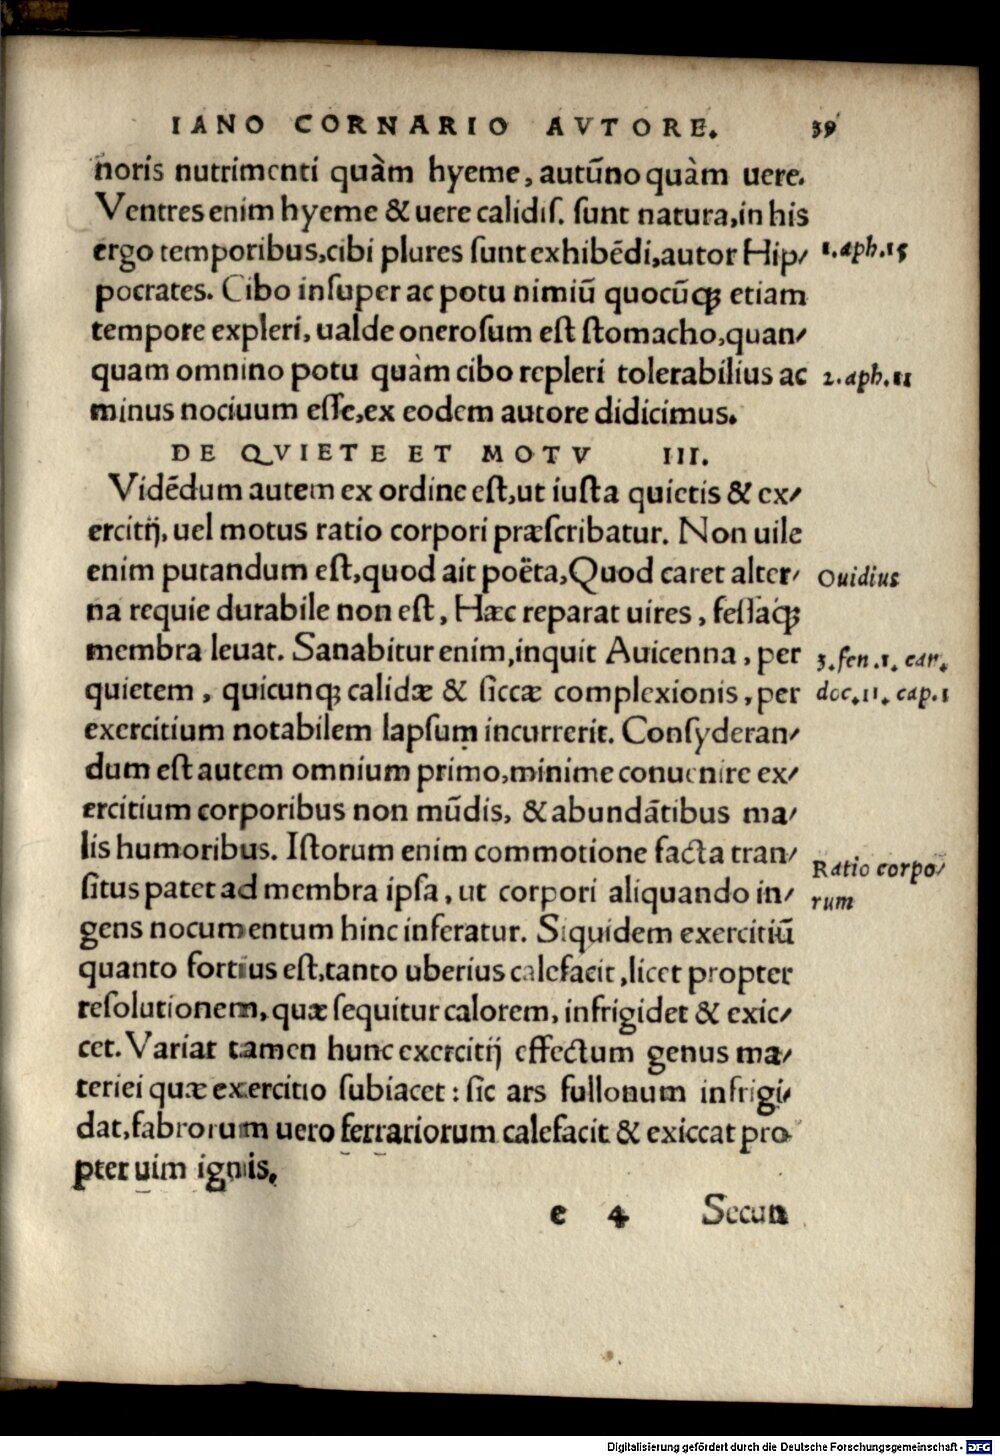 IANO CORNARIO AVTORE. 39
noris nutrimenti quàm hyeme, autũno quàm uere.
Ventres enim hyeme & uere calidiſ. ſunt natura, in his
ergo temporibus, cibi plures ſunt exhibẽdi, autor Hip/
1. aph. 15
pocrates. Cibo inſuper ac potu nimiũ quocũqꝫ etiam
tempore expleri, ualde oneroſum eſt ſtomacho, quan/
quam omnino potu quàm cibo repleri tolerabilius ac
2. aph. 11
minus nociuum eſſe, ex eodem autore didicimus.
DE QVIETE ET MOTV III.
Vidẽdum autem ex ordine eſt, ut iuſta quietis & ex/
ercitij, uel motus ratio corpori præſcribatur. Non uile
enim putandum eſt, quod ait poëta, Quod caret alter/
Ouidius
na requie durabile non eſt, Hæc reparat uires, feſſaqꝫ
membra leuat. Sanabitur enim, inquit Auicenna, per
3. fen. 1. can.
quietem, quicunqꝫ calidæ & ſiccæ complexionis, per
doc. 11. cap. 1
exercitium notabilem lapſum incurrerit. Conſyderan/
dum eſt autem omnium primo, minime conuenire ex/
ercitium corporibus non mũdis, & abundãtibus ma/
lis humoribus. Iſtorum enim commotione facta tran/
Ratio corpo/
ſitus patet ad membra ipſa, ut corpori aliquando in/
rum
gens nocumentum hinc inferatur. Siquidem exercitiũ
quanto fortius eſt, tanto uberius calefacit, licet propter
reſolutionem, quæ ſequitur calorem, infrigidet & exic/
cet. Variat tamen hunc exercitij effectum genus ma/
teriei quæ exercitio ſubiacet: ſic ars fullonum infrigi/
dat, fabrorum uero ferrariorum calefacit & exiccat pro
pter uim ignis.
e 4 Secun
Digitalisierung gefördert durch die Deutsche Forschungsgemeinschaft - DFG